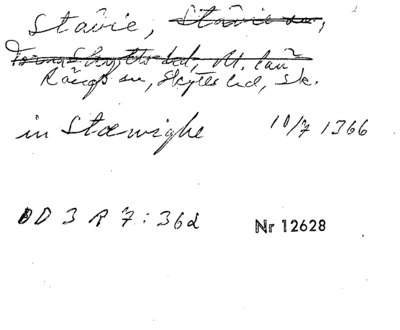 Stävie, Stävie sn,
Torna Skytts hd, M. län
Rängs sn, Skytts hd, Sk.
in Stæwighe 10/7 1366
DD 3 R 7:36d Nr 12628